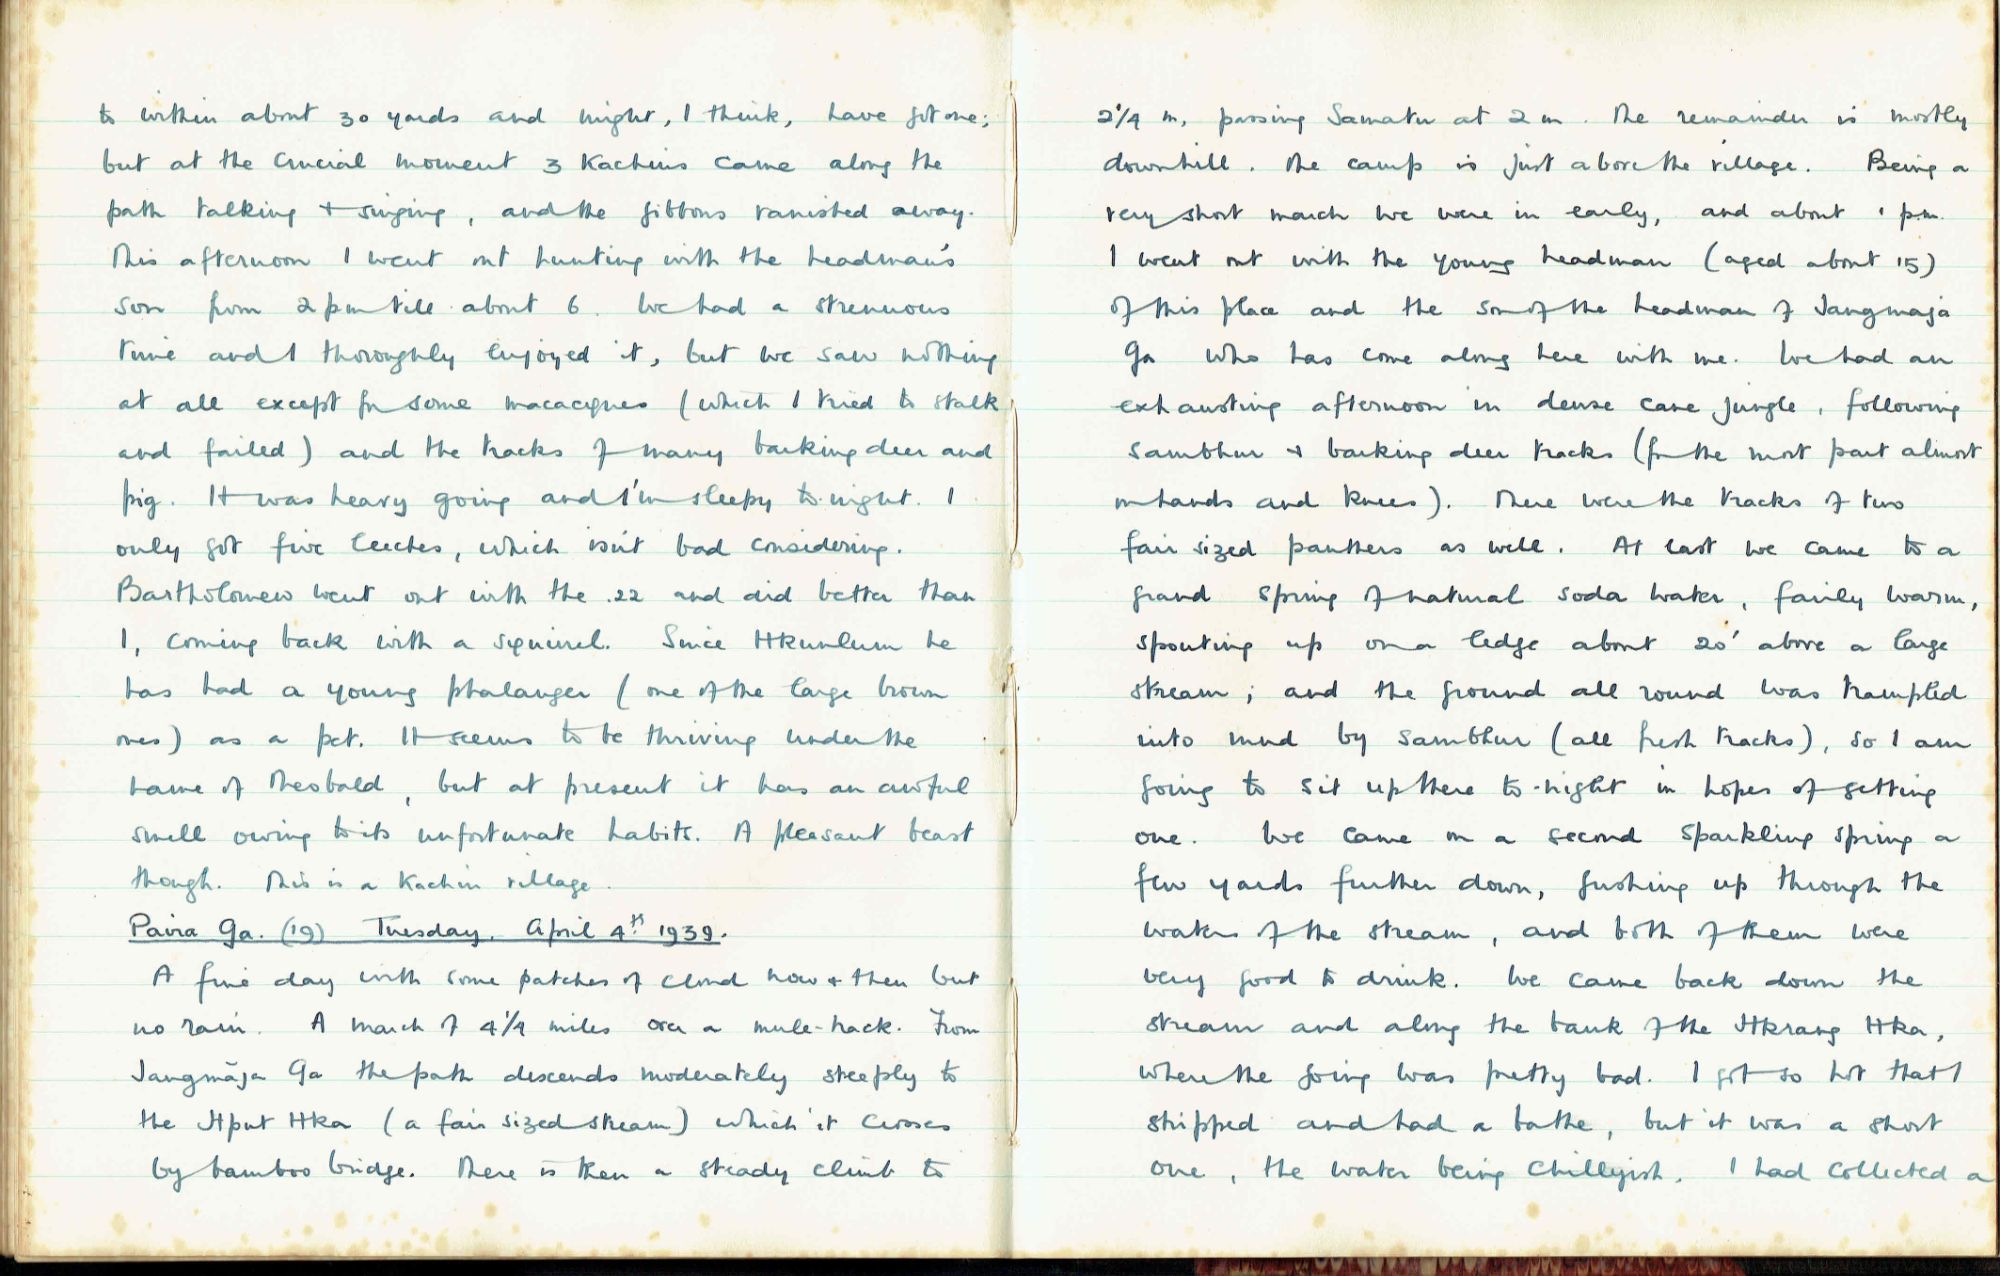 to within about 30 yards and might, I think, have got one;
but at the crucial moment 3 Kachins came along the
path talking + singing, and the gibbons vanished away.
This afternoon I went out hunting with the headman's
son from 2 pm till about 6. We had a strenuous
time and I thoroughly enjoyed it, but we saw nothing
at all except for some macacques (which I tried to stalk
and failed) and the tracks of many barking deer and
pig. It was heavy going and I'm sleepy to-night. I
only got five leeches, which isn't bad considering.
Bartholomew went out with the .22 and did better than
I, coming back with a squirrel. Since Hkumlum he
has had a young phalanger (one of the large brown
ones) as a pet. It seems to be thriving under the
name of Theobald, but at present it has an awful
smell owing to its unfortunate habits. A pleasant beast
though. This is a Kachin village.
Paira Ga. (19) Tuesday. April 4th 1939.
A fine day with some patches of cloud now + then but
no rain. A march of 4 1/4 miles over a mule-track. From
Jangmāja Ga the path descends moderately steeply to
the Hput Hka (a fair sized stream) which it crosses
by bamboo bridge. There is then a steady climb to
2 1/4 m, passing Samatu at 2 m. The remainder is mostly
downhill. The camp is just above the village. Being a
very short march we were in early, and about 1 p.m.
I went out with the young headman (aged about 15)
of this place and the son of the headman of Jangmaja
Ga who has come along here with me. We had an
exhausting afternoon in dense cane jungle, following
sambhur + barking deer tracks (for the most part almost
on hands and knees). There were the tracks of two
fair sized panthers as well. At last we came to a
grand spring of natural soda water, fairly warm,
spouting up on a ledge about 20' above a large
stream; and the ground all round was trampled
into mud by sambhur (all fresh tracks), so I am
going to sit up there to-night in hopes of getting
one. We came on a second sparkling spring a
few yards further down, gushing up through the
water of the stream, and both of them were
very good to drink. We came back down the
stream and along the bank of the Hkrang Hka,
where the going was pretty bad. I got so hot that I
stripped and had a bathe, but it was a short
one, the water being chillyish. I had collected a